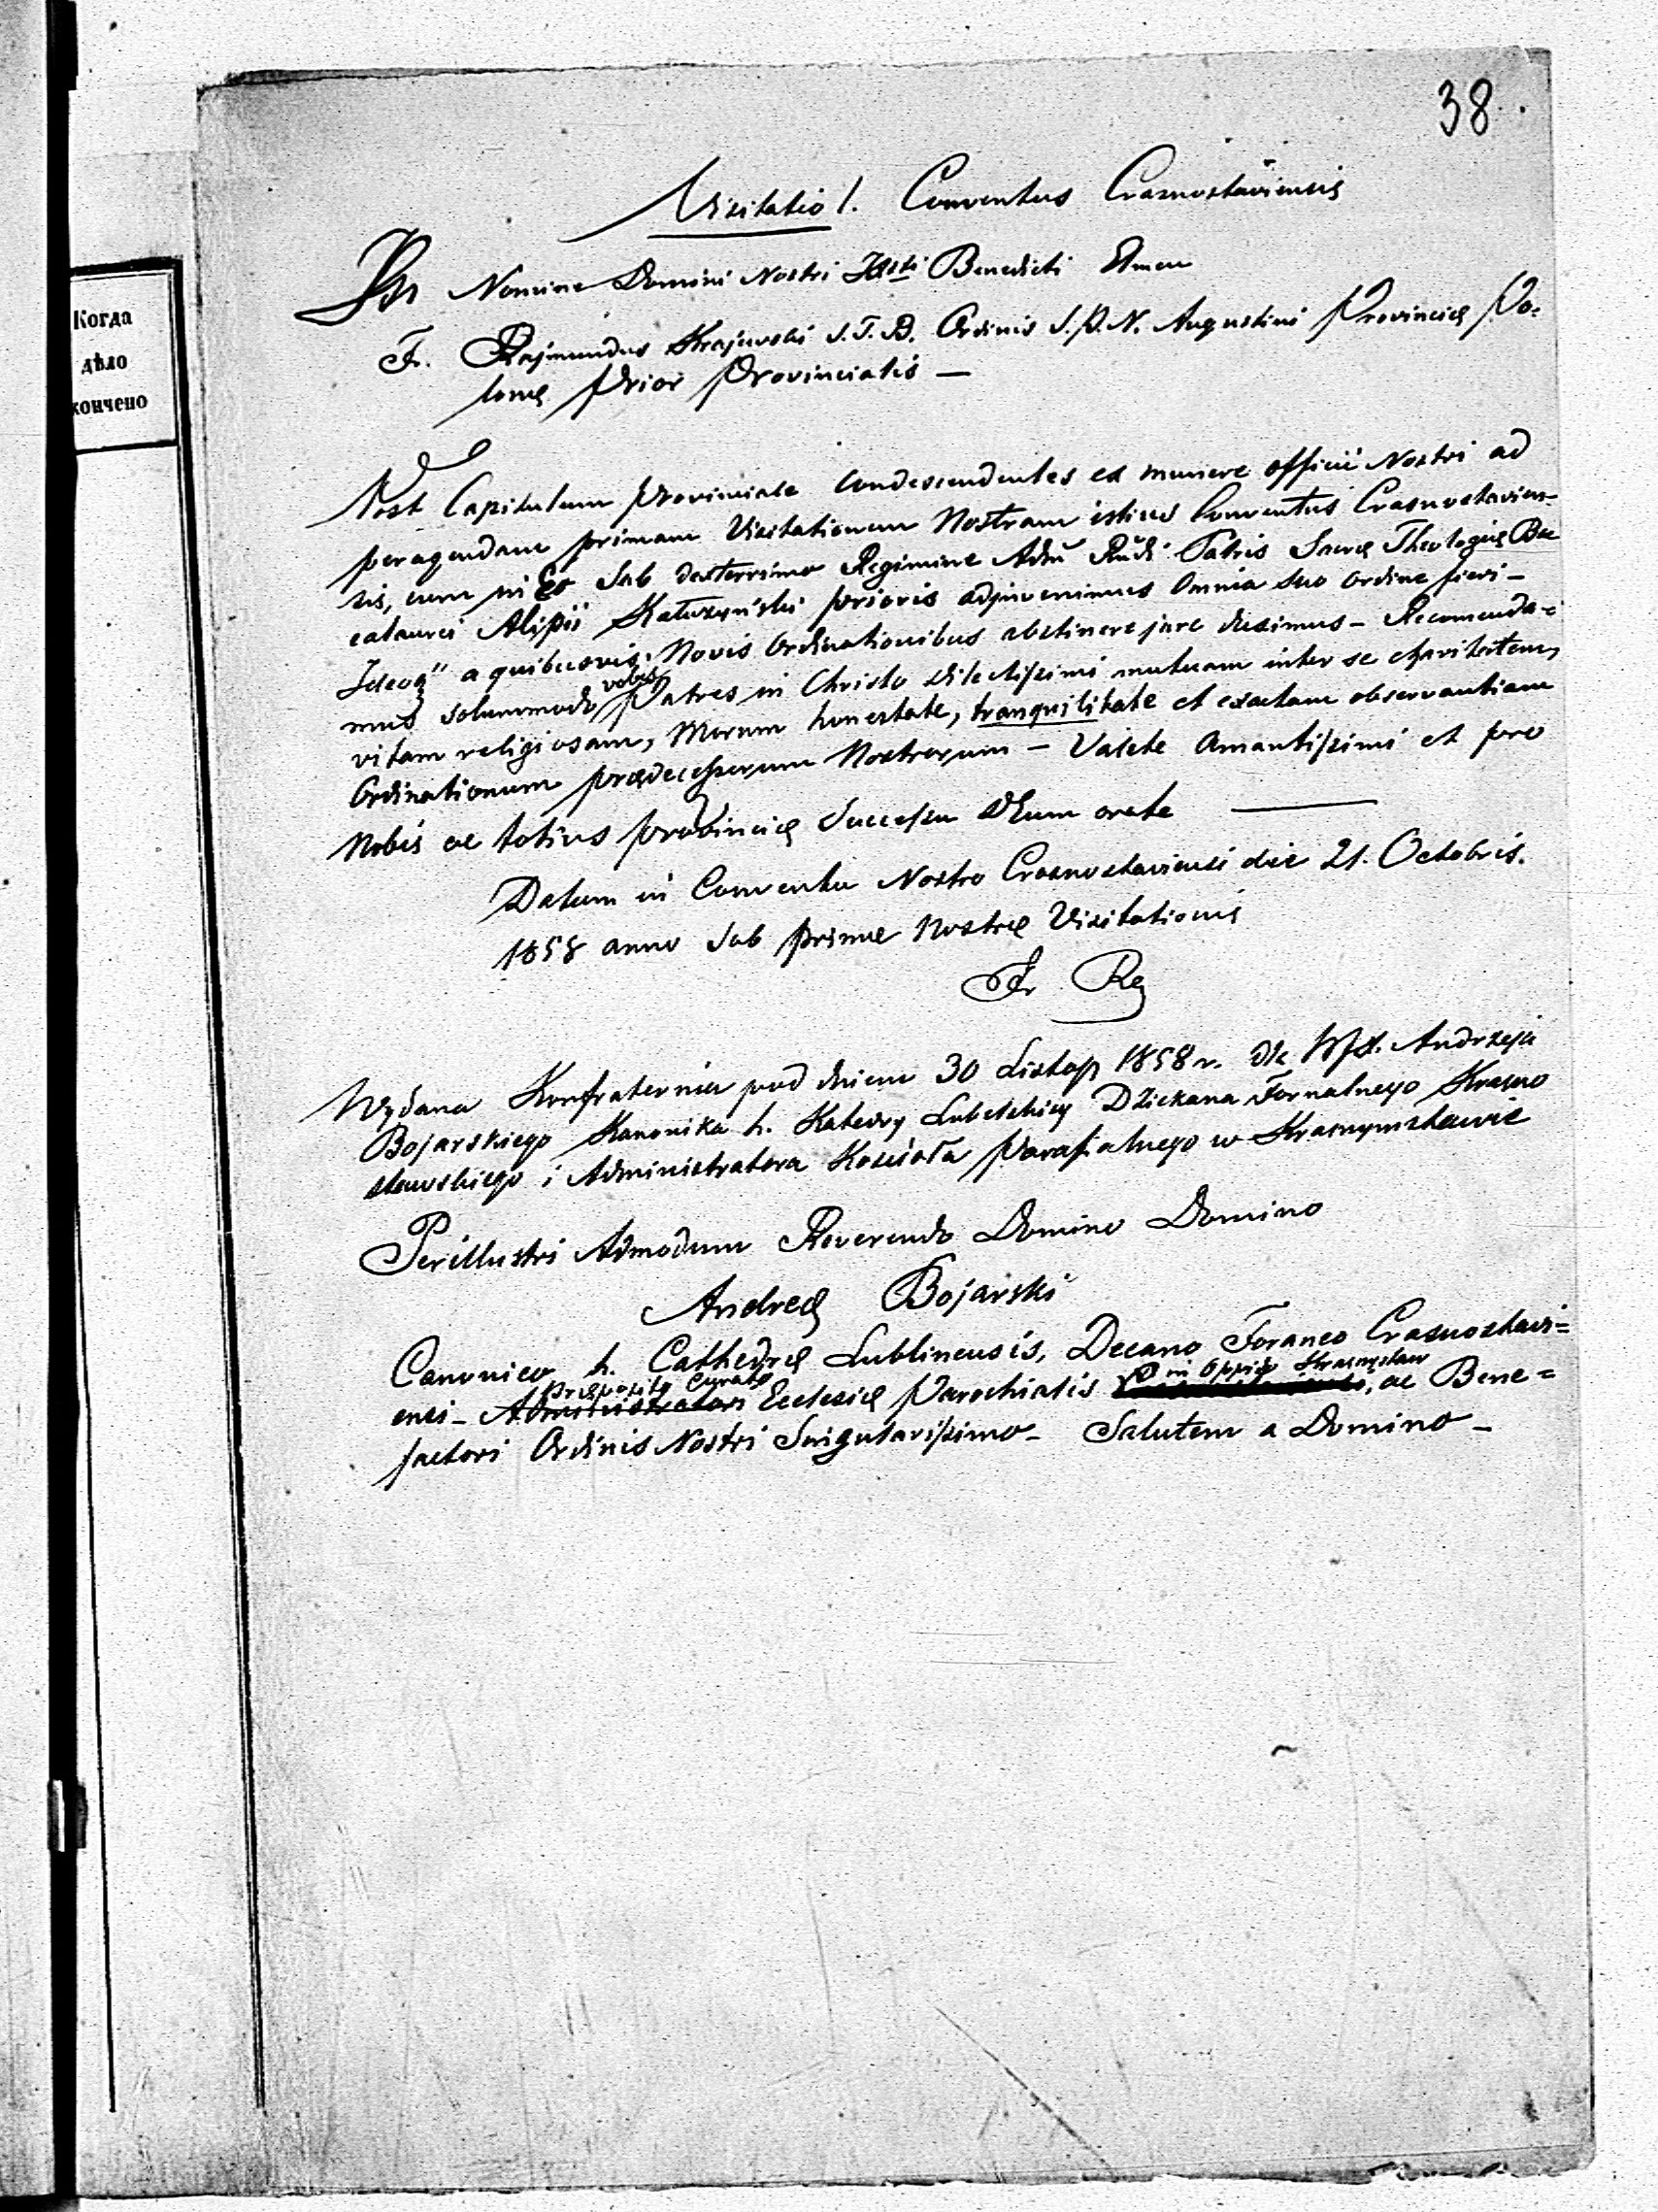 38.
Visitatio 1. Conventus Crasnostaviensis
In Nomine Domini Nostri Benedicti Amen
F. Rajmundus Krajewski S.T.B. Ordinis S.P.N. Augustini Provinciæ Po=
lonæ Prior Provincialis —
Post Capitulum Provinciale condescendentes ex munere officii Nostri ad
peragendam primam Visitationem Nostram istius Conventus Crasnostavien-
sis, cum in Eo sub dexterrimo Regimine Adm̃ Rñdi Patris Sacræ Theologiæ Bac
calaurei Alipii Kałuszyński prioris adjnvenimus Omnia suo ordine fieri –
Ideoq" a quibusvis Novis Ordinationibus abstinere jure duximus – Recomenda=
mus solummodo vobis Patres in Christo dilectissimi mutuam inter se charitatem,
vitam religiosam, Morum honestate, tranquilitate et exactam observantiam
Ordinationum prædecessorum Nostrorum – Valete Amantissimi et pro
Nobis ac totius provinciæ Successu Deum orate
Datum in Conventu Nostro Crasnostaviensi die 21. Octobris.
1858 anno sub primæ Nostræ Visitationis
Fr
Wydana Konfraternia pod dniem 30 Listop 1858 r. dla Andrzeja
Bojarskiego Kanonika h. Katedry Lubelskiej Dziekana Fornalnego Krasno
stawskiego i Administratora Kościoła Parafialnego w Krasnymstawie
Perillustri Admodum Reverendo Domino Domino
Andreæ Bojarski
Canonico h. Cathedræ Lublinensis, Decano Foraneo Crasnostavi=
præposito Curato in Oppido Krasnystaw
ensi – Administratori Ecclesiæ Parochialis , ac Bene=
factori Ordinis Nostri Singularissimo – Salutem a Domino –
Когда
дѣло
кончено